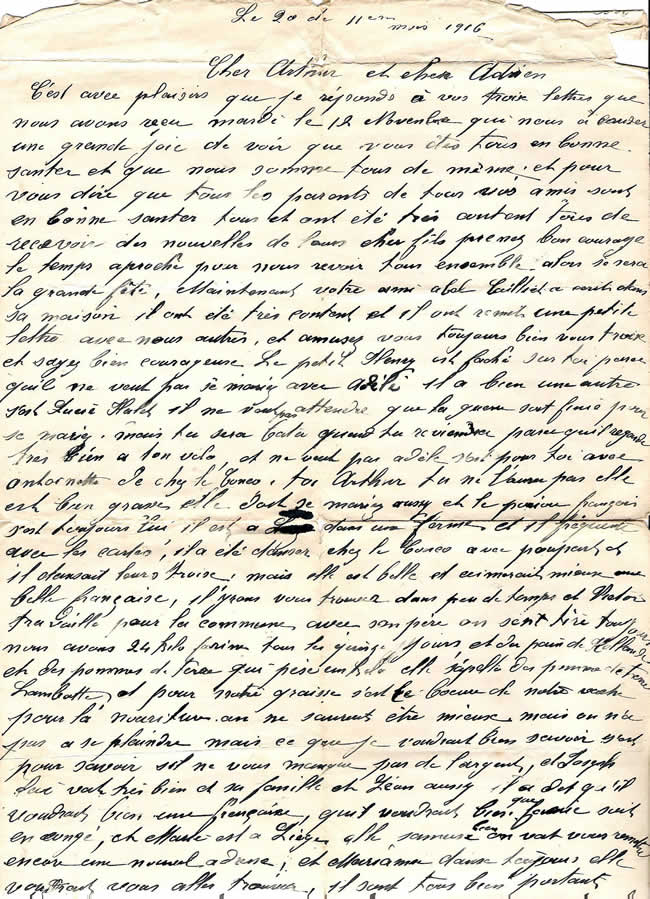 Le 20 de 11em
mois 1916
Cher Arthur et cher Adrien
C'est avec plaisirs que je réponds à vos troix lettres que
nous avons reçu mardi le 12 Novembre qui nous à causer
une grande joie de voir que vous êtes tous en bonne
santer et que nous somme tous de même, et pour
vous dire que tous les parents de tous vos amis sont
en bonne santer tous et ont été très autant fères de
recevoir des nouvelles de leurs cher fils prenez bon courage
le temps aproche pour nous revoir tous ensemble alors se sera
la grande fête, Maintenant votre ami abel a écrit dans
sa maison il ont été très content et il ont remit une petite
lettre avec nous autres, et amusez vous toujours bien vous troix
et soyez bien courageuse. Le petit Henry est faché sur toi parce
qu'il ne veut pas se mariez avec adèle il a bien une autre
s'est Lucie il ne veut pas attendre que la guerre soit finie pour
se mariez, mais tu sera quand tu reviendra parce qu'il regarde
très bien a ton vélo, et ne veut pas adèle s'est pour toi avec
antoinette de chez le Bosco, toi Arthur tu ne l'aura pas elle
est bien grasse elle doit se mariez aussy et le françois
s'est toujours lui il est a dans une ferme et il fréquente
avec les cartes, il a été danser chez le Bosco avec et
il dansait leurs troix, mais elle est belle et aimerait mieux une
belle française, il yrons vous trouver dans peu de temps et Victor
travaille pour la commune avec son père on sent tire toujours
nous avons 24 kilo farine tous les quinze jours et du pain de Hollande
et des pommes de terre qui pèse un kilo elle s'apelle des pomme de terre
Lambotte, et pour notre graisse s'est le beure de notre vache
pour la nouriture on ne saurait être mieux mais on n'a
pas a se plaindre mais ce que je voudrait bien savoir s'est
pour savoir s'il ne vous manque pas de l'argent, et Joseph
vat très bien et sa famille et Léon aussy il a dit qu'il
voudrait bien une française, qu'il voudrait bien que soit
en congé, et Marie est a Liège elle samuse bien on vat vous remettre
encore une nouvel adresse, et Marianne danse toujours elle
voudrait vous aller trouver, il sont tous bien portant